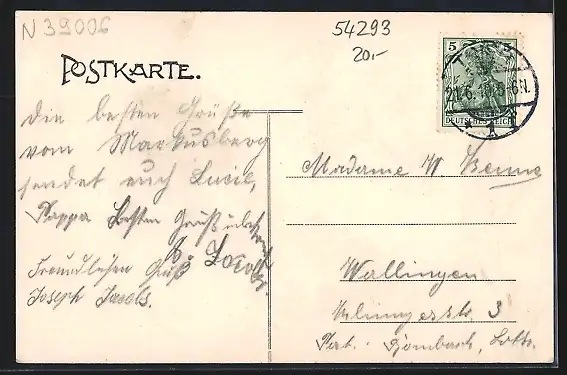 N 39006
54293
20.-
POSTKARTE.
5
21.6. 5-6N.
DEUTSCHES REICH
* 1 *
die besten Grüße
vom Markusberg
sendet euch Lucie,
Pappa besten Gruß
Jacobs
Freundlichen Gruß
Joseph Jacobs.
Madame W Benne
Wallingen
3
Rombach, Lothr.